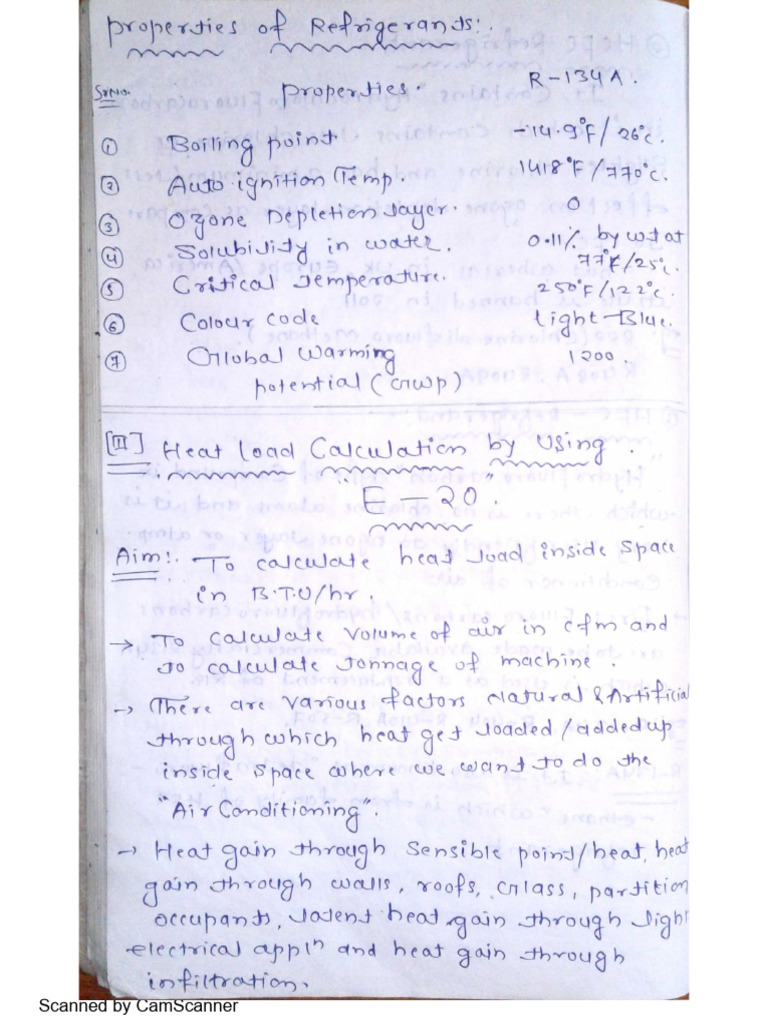 Properties of Refrigerants:
Sr No. Properties. R-134A.
① Boiling point -14.9°F/26°C.
② Auto ignition Temp. 1418°F/770°C.
③ Ozone Depletion layer. 0
④ Solubility in water. 0.11% by wt at 77°F/25°C.
⑤ Critical Temperature. 250°F/122°C.
⑥ Colour code Light Blue.
⑦ Global Warming 1200.
potential (GWP)
[II] Heat load Calculation by Using.
"E-20.
Aim:. To calculate heat load inside space
in B.T.U/hr.
→ To calculate volume of air in cfm and
to calculate tonnage of machine.
→ There are various factors Natural & Artificial
through which heat get loaded/added up
inside space where we want to do the
"Air Conditioning".
→ Heat gain through Sensible point/heat, heat
gain through walls, roofs, Glass, partition
occupants, latent heat gain through light
electrical applⁿ and heat gain through
infiltration.
Scanned by CamScanner